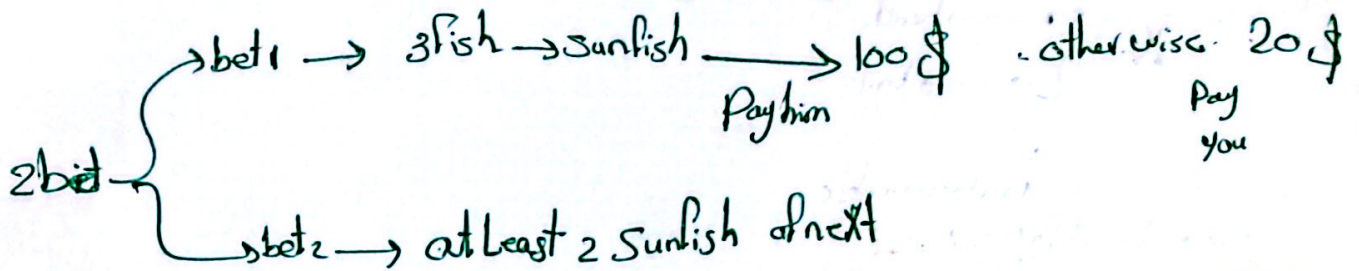 bet1 → 3fish → sunfish → 100$ . otherwise. 20$
Pay him
Pay
you
2bet
bet2 → at least 2 Sunfish of next